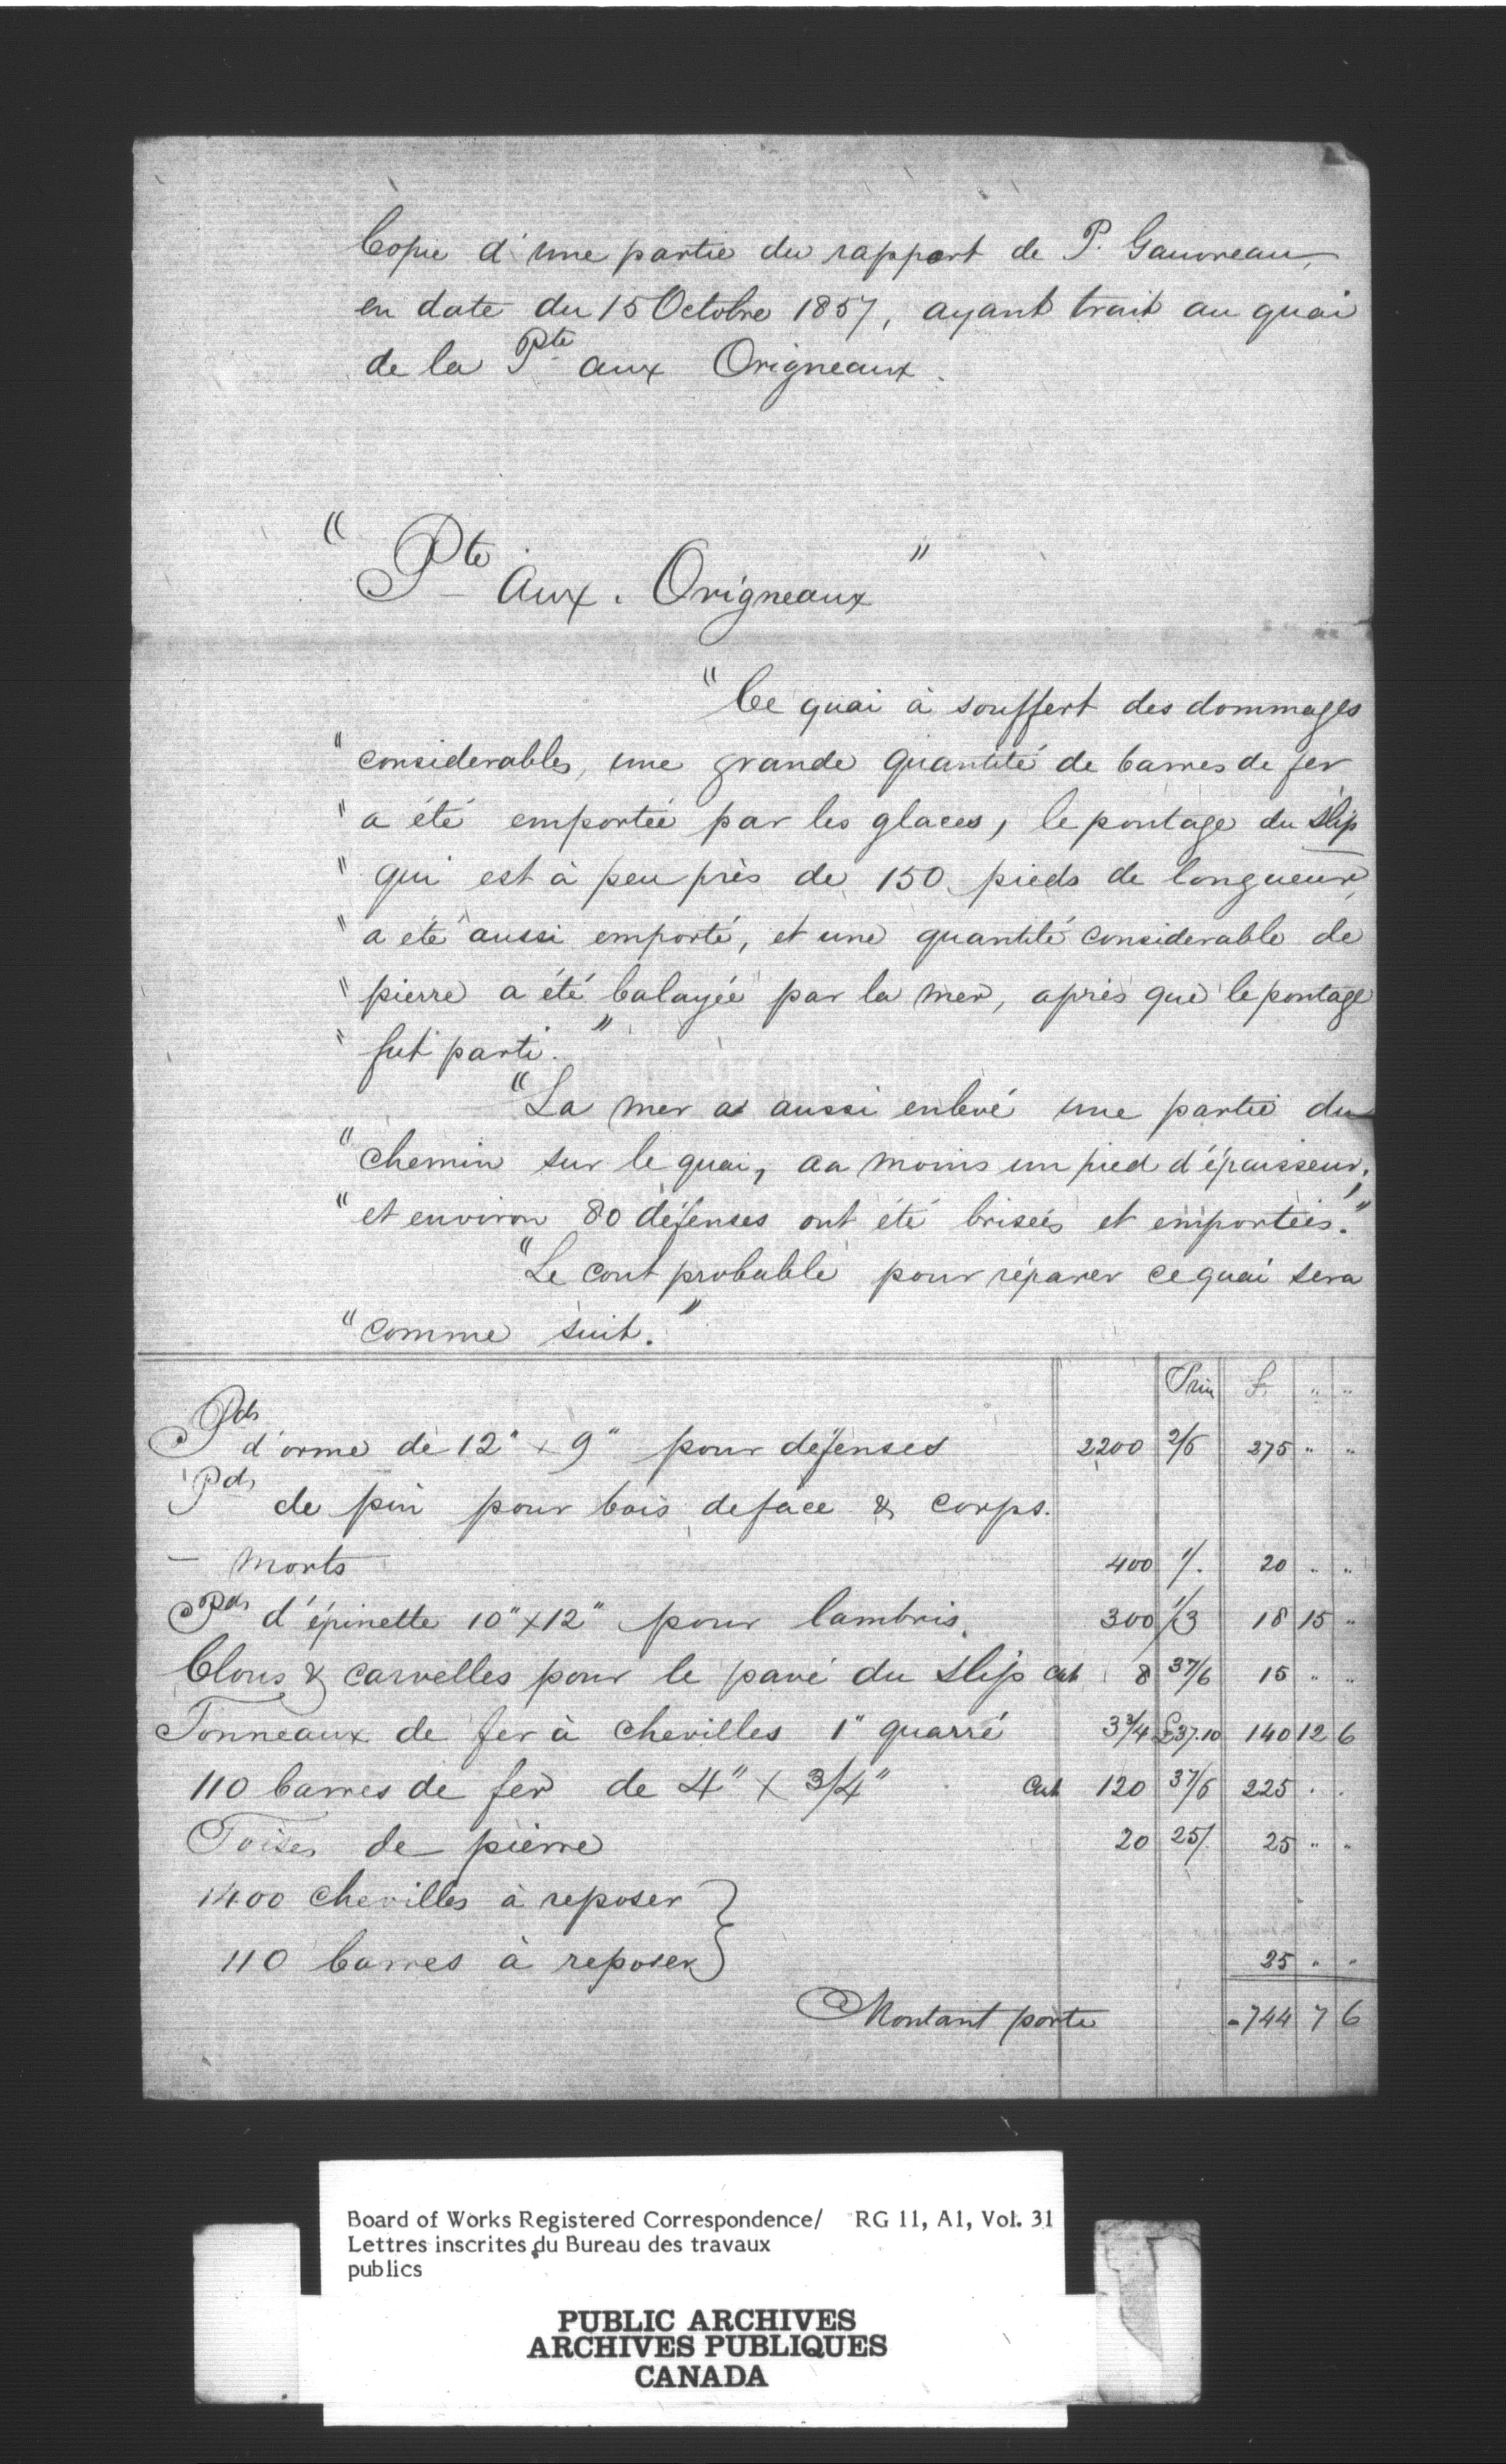 Copie d'une partie du rapport de P. Gauvreau,
en date du 15 Octobre 1857, ayant trait au quai
de la Pte aux Origneaux.
" Pte Aux. Origneaux "
" Ce quai à souffert des dommages
" considerables, une grande quantité de barres de fer
" a été emportée par les glaces, le pontage du Slip
" qui est à peu près de 150 pieds de longueur,
" a eté aussi emporté, et une quantité considerable de
" pierre a été balayée par la mer, après que le pontage
" fut parti. "
" La mer a aussi enlevé une partie du
" chemin sur le quai, au moins un pied d'épaisseur,
" et environ 80 défenses ont été brisées et emportées. "
" Le cout probable pour réparer ce quai sera
" comme suit. "
Prix £ " "
Pds d'orme de 12" x 9" pour défenses 2200 2/6 275 " "
Pds de pin pour bois de face & corps.
— morts 400 1/. 20 " "
Pds d'épinette 10" x 12" pour lambris. 300 1/3 18 15 "
Clous & carvelles pour le pavé du slip Cwt 8 37/6 15 " "
Tonneaux de fer à chevilles 1" quarré 3 3/4 £37.10 140 12 6
110 barres de fer de 4" x 3/4" Cwt 120 37/6 225 " "
Toises de pierre 20 25/. 25 " "
1400 chevilles à reposer }
110 barres à reposer } 25 " "
Montant porté 744 7 6
Board of Works Registered Correspondence/ RG 11, A1, Vol. 31
Lettres inscrites du Bureau des travaux
publics
PUBLIC ARCHIVES
ARCHIVES PUBLIQUES
CANADA